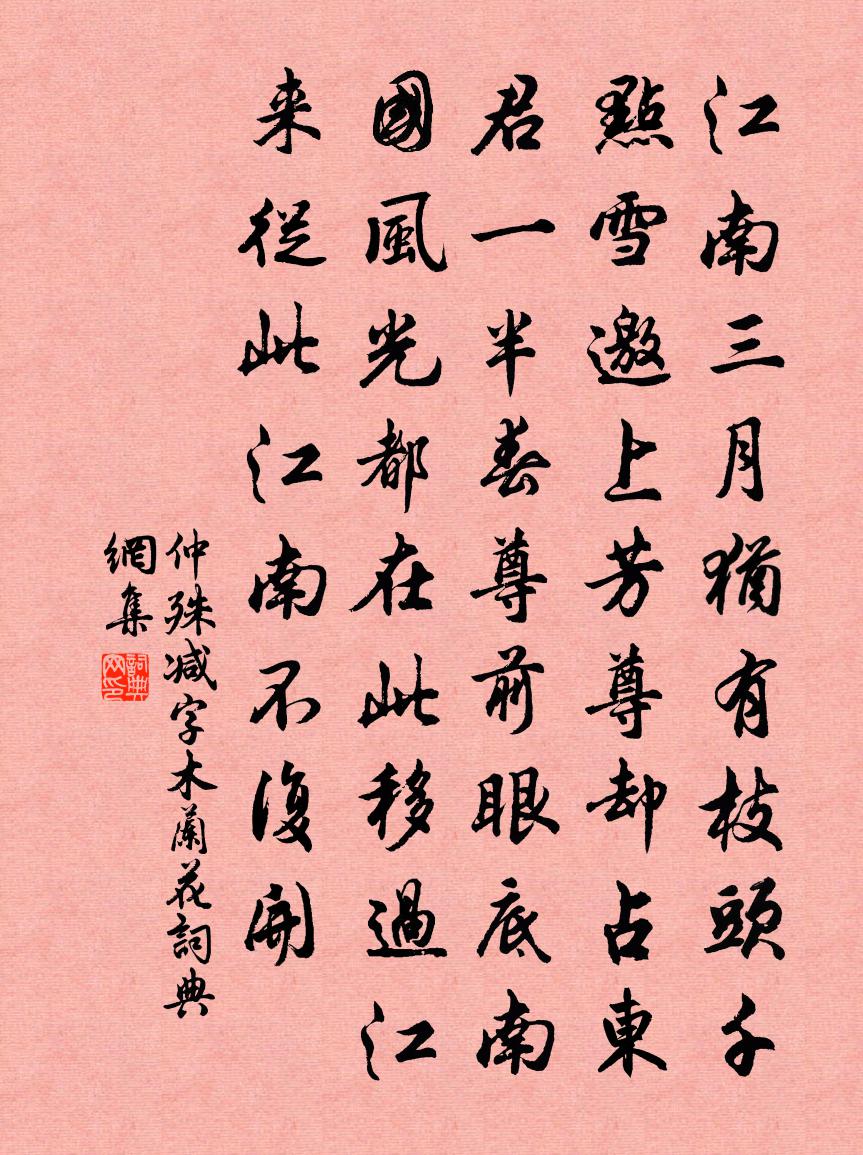 江南三月猶有枝頭千
點雪邀上芳尊却占東
君一半春尊前眼底南
國風光都在此移過江
来從此江南不復開
仲殊减字木蘭花詞典
網集
詞典
网印